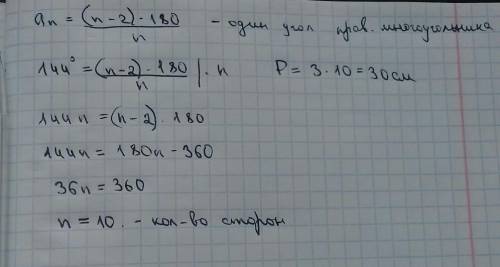 an = (n-2)·180 / n - один угол прав. многоугольника
144° = (n-2)·180 / n | · n P = 3·10 = 30 см
144n = (n-2)·180
144n = 180n - 360
36n = 360
n = 10. - кол-во сторон